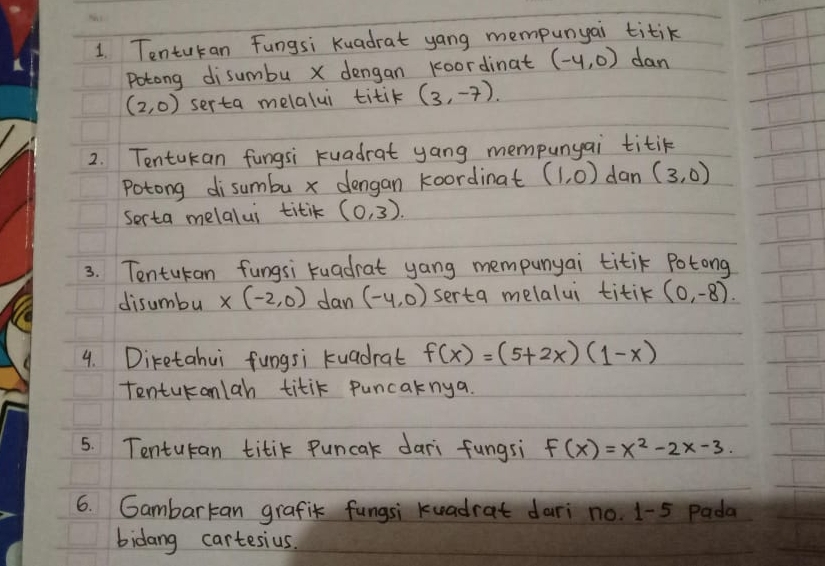 No.
1. Tentukan Fungsi Kuadrat yang mempunyai titik
Potong disumbu x dengan koordinat (-4,0) dan
(2,0) serta melalui titik (3,-7).
2. Tentukan fungsi kuadrat yang mempunyai titik
Potong disumbu x dengan koordinat (1,0) dan (3,0)
Serta melalui titik (0,3).
3. Tentukan fungsi kuadrat yang mempunyai titik Potong
disumbu x (-2,0) dan (-4,0) serta melalui titik (0,-8).
4. Diketahui fungsi kuadrat f(x) = (5+2x)(1-x)
Tentukanlah titik Puncaknya.
5. Tentukan titik Puncak dari fungsi f(x) = x² -2x-3.
6. Gambarkan grafik fungsi kuadrat dari no. 1-5 Pada
bidang cartesius.